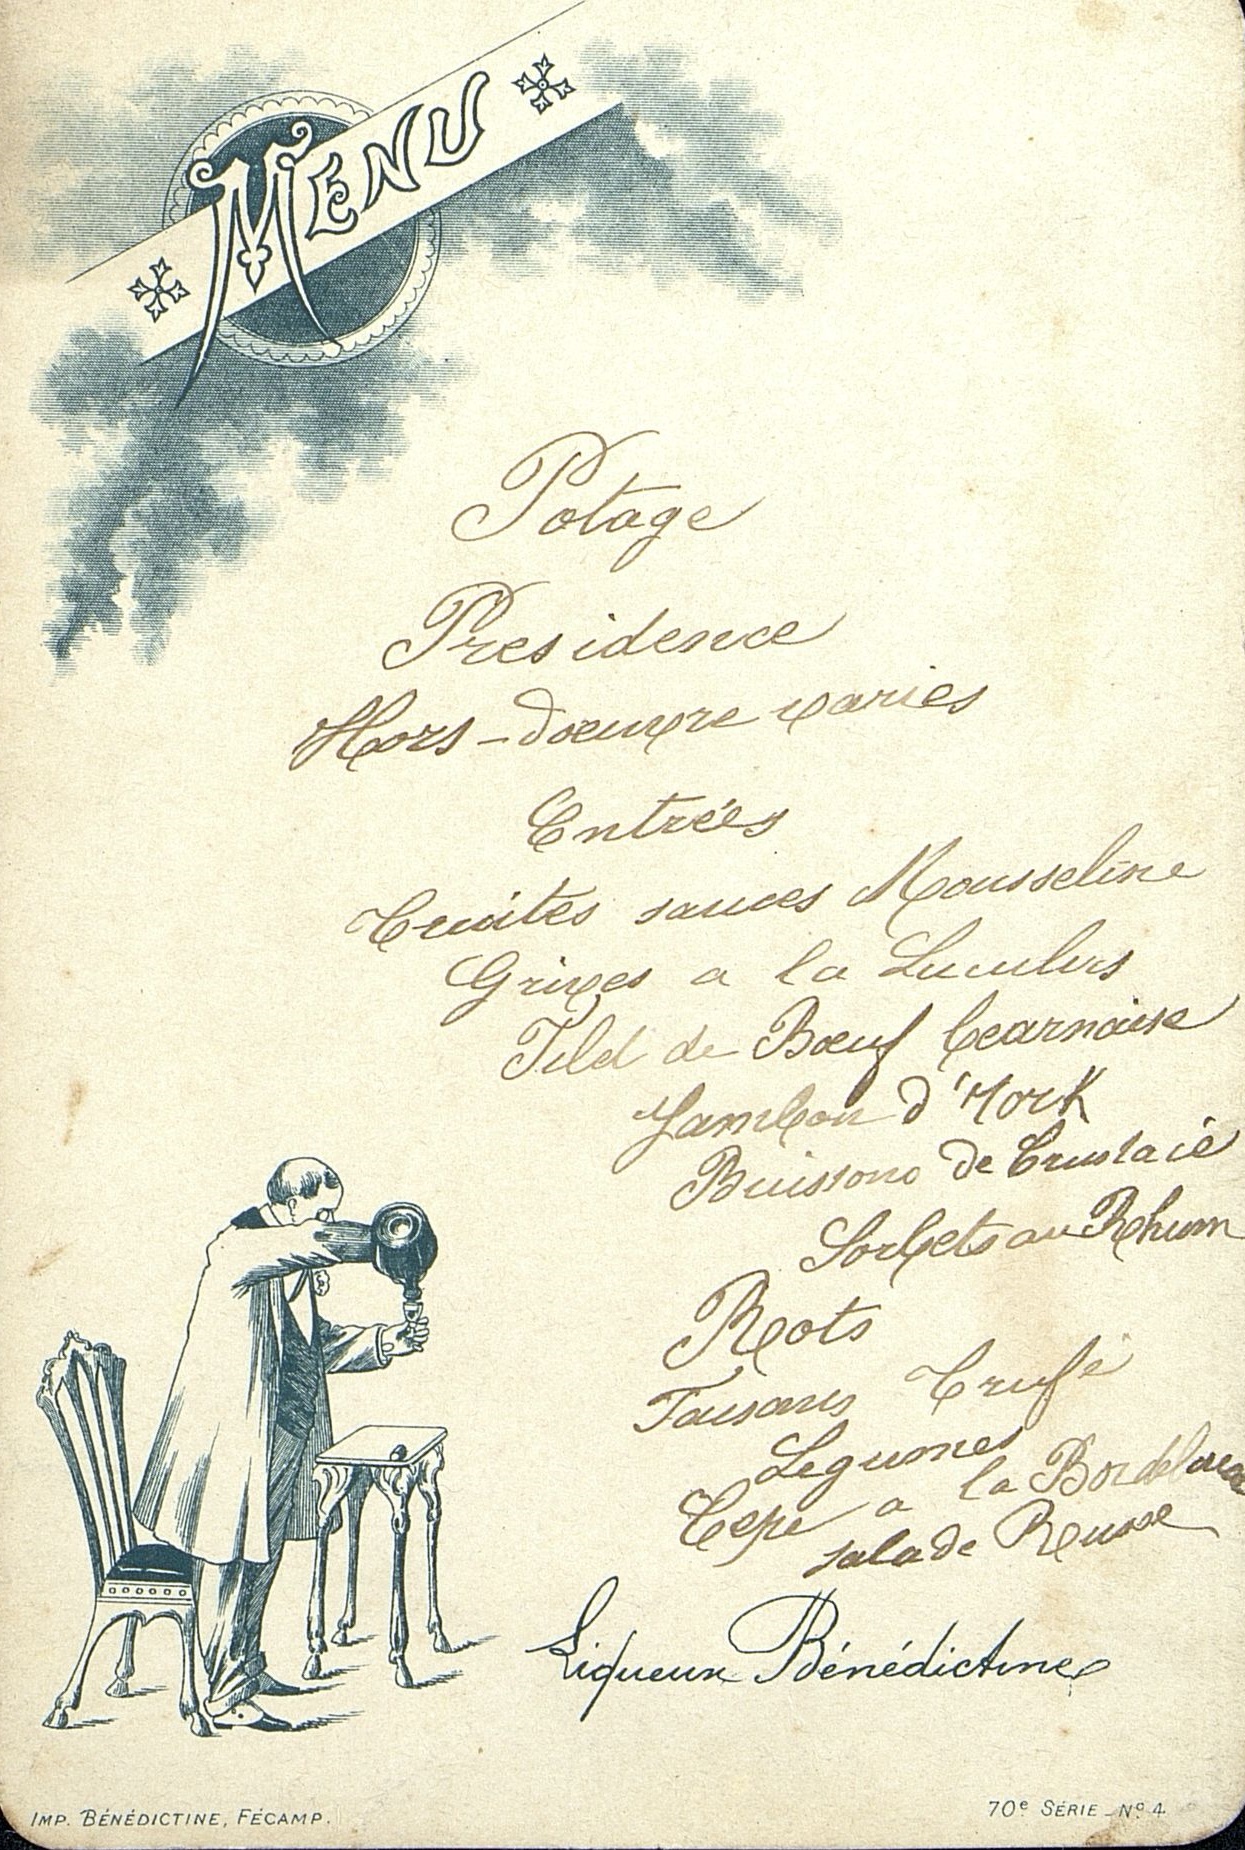 MENU
Potage
Presidence
Hors-doeuvre varies
Entrées
Truites sauces Mousseline
Grives a la Lucullus
Filet de Bœuf bearnaise
Jambon d'York
Buissons de Crustacé
Sorbets au Rhum
Rots
Faisans Trufé
Legumes
Cepe a la Bordelaise
salade Russe
Liqueur Bénédictine
IMP. BÉNÉDICTINE, FÉCAMP.
70e SÉRIE_No 4